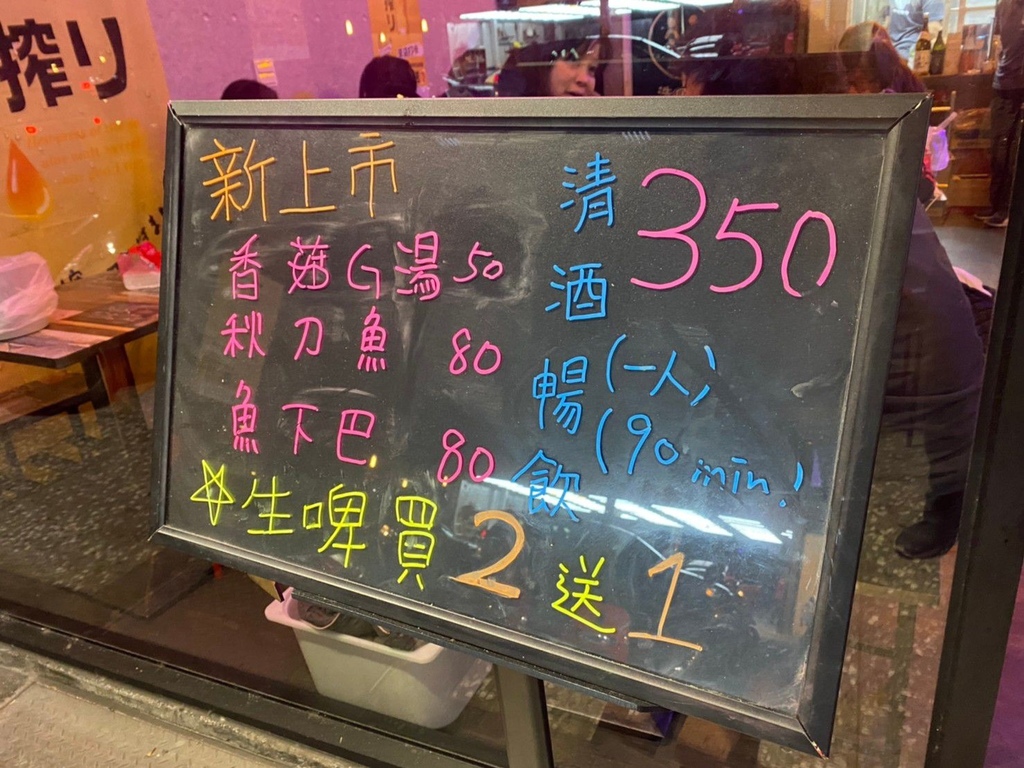 搾り
新上市
香菇G湯 50
秋刀魚 80
魚下巴 80
清酒暢飲 350
(一人)
(90 min!
☆生啤買2送1